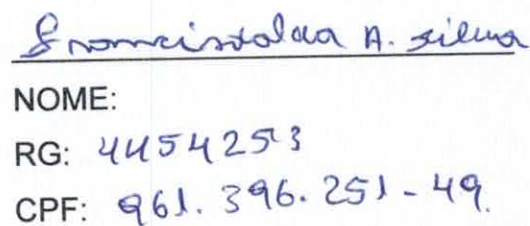 Francisdalda A. Silva
NOME:
RG: 4454253
CPF: 961.396.251-49.